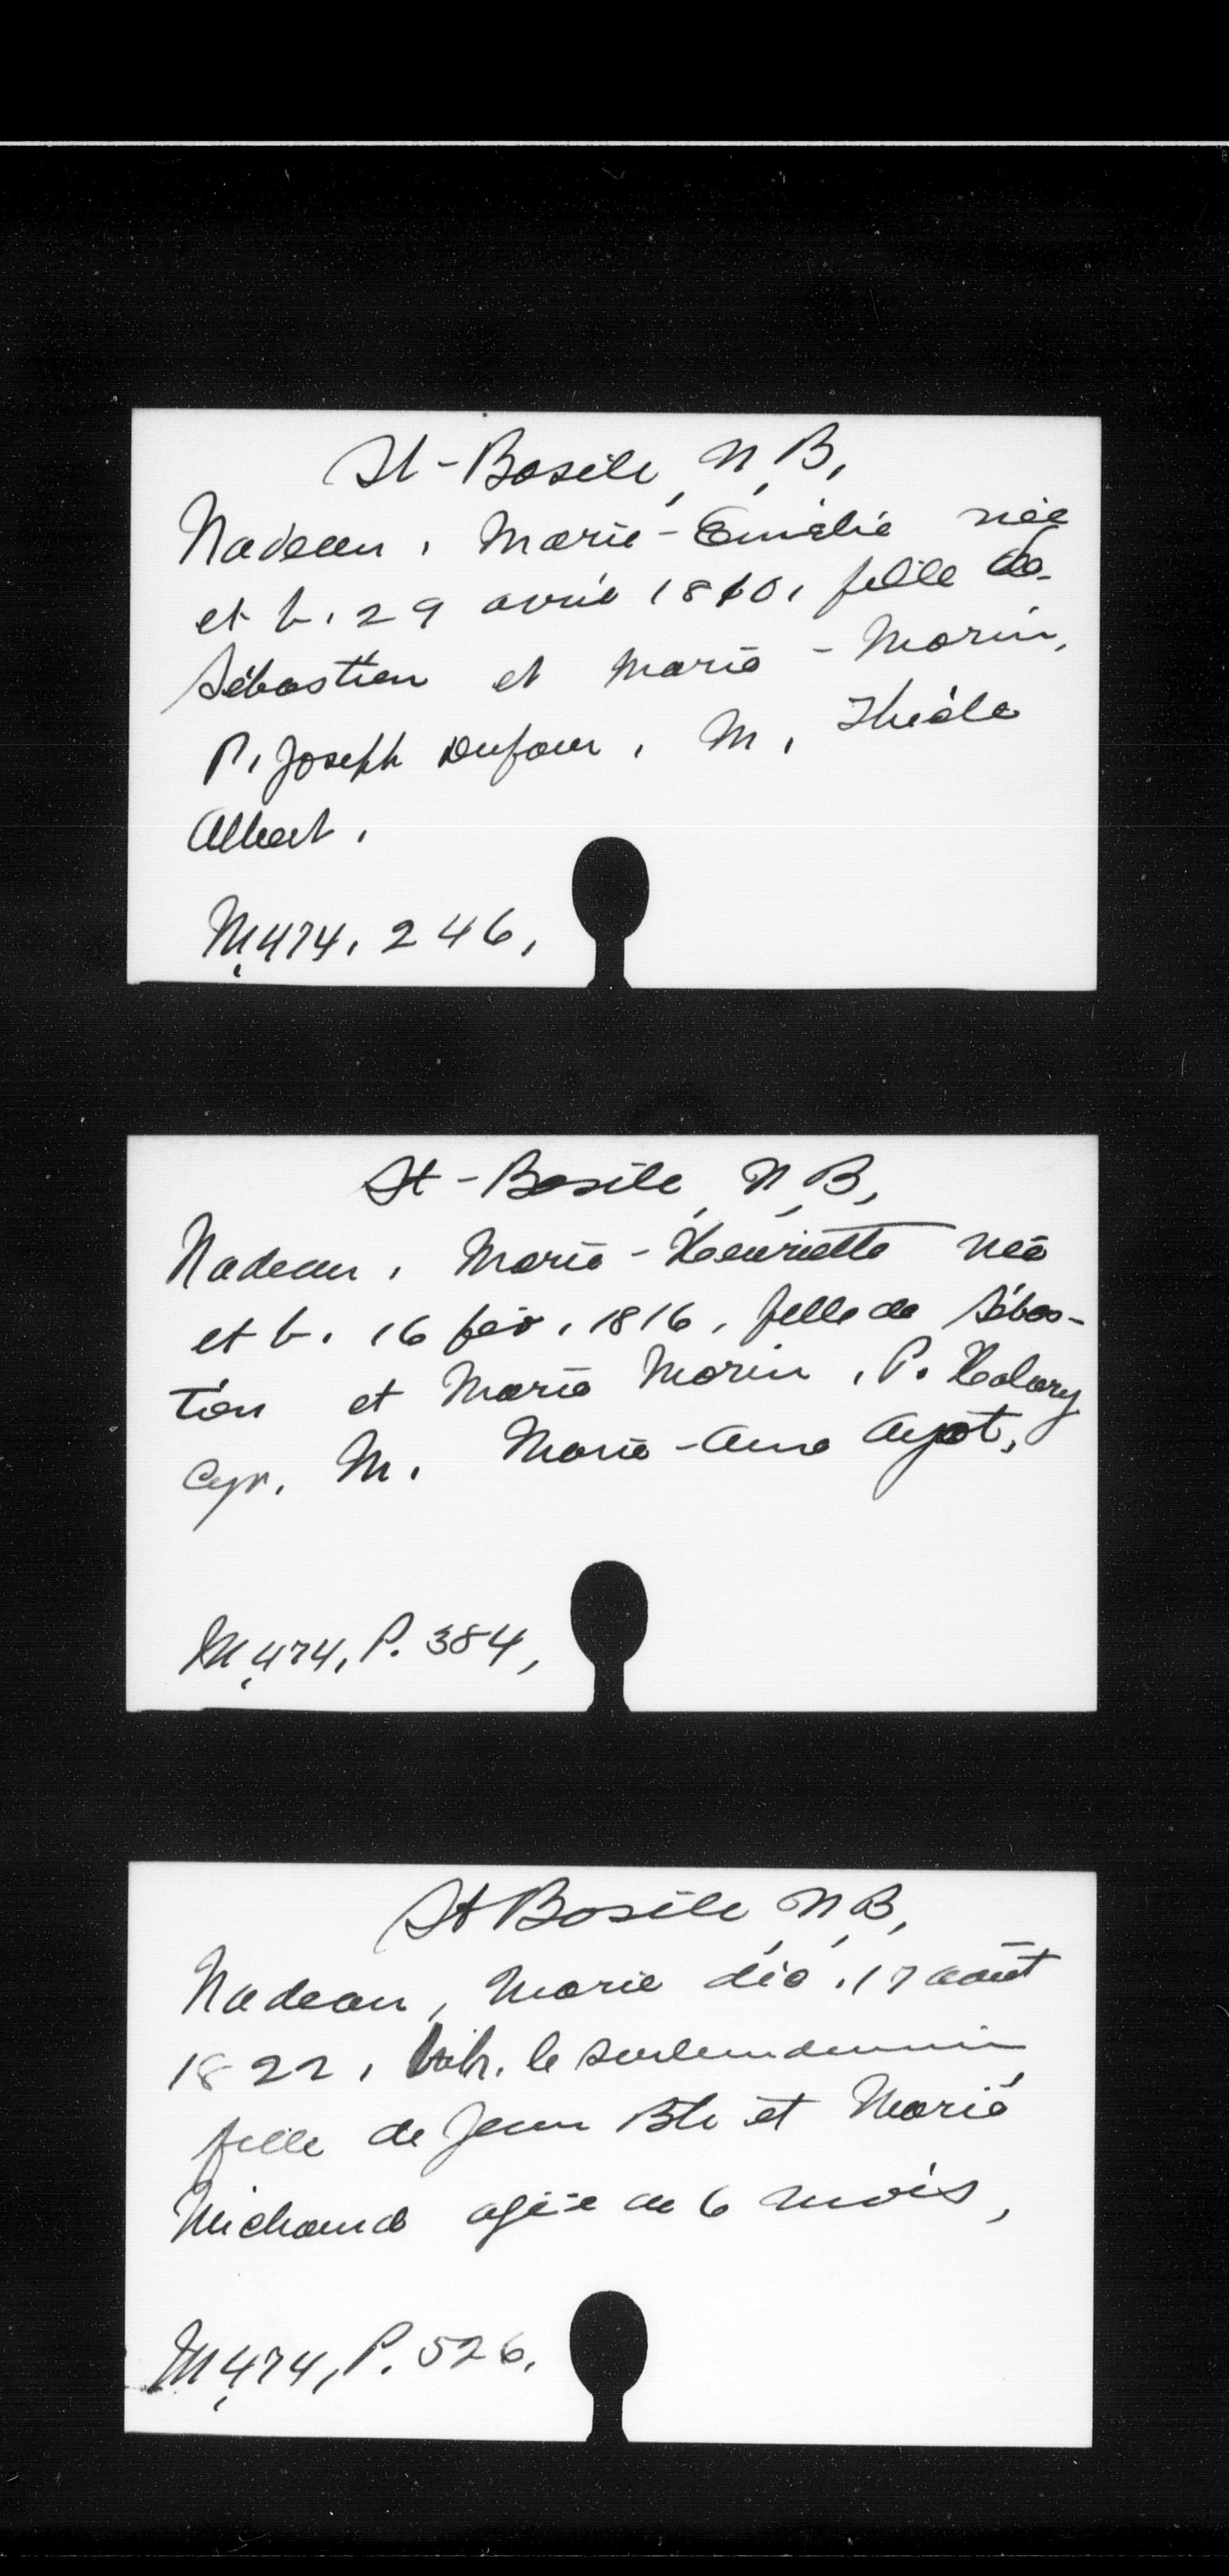 St-Basile, N, B,
Nadeau, Marie-Emélie née
et b. 29 avril 1810, fille de
Sébastien et Marie - Morin,
P, Joseph Dufour, M,
Albert,
M,474, 246,
St-Basile, N, B,
Nadeau, Marie-Henriette née
et b. 16 fév, 1816, fille de Sébas-
tien et Marie Morin, P. Hilary
Cyr, M, Marie-Anne Ayot,
M,474, P. 384,
St Basile, N, B,
Nadeau, Marie déc, 17 août
1822, inh. le surlendemain
fille de Jean Bte et Marie
Michaud agée de 6 mois,
M,474, P. 526,